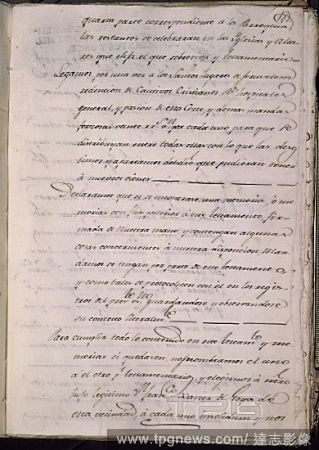 quarta parte correspondiente a la Parroquia
las restantes se celebraran en las Iglesias y Altares
que elija el que sobreviva y testamentarios
Legamos por una vez a los Santos lugares de Jerusalem
redencion de Cautivos Cristianos Rs. hospitales
general, y pasion de esta Corte y demas mandas
forzosas veinte rs. vn. por cada uno, para que se
distribuyan entre todas ellas con lo que las
y apartamos del dro. que pudieran tener
a nuestros vienes
Declaramos que si se encontrase una memoria, o memorias
con fha posterior a este testamento, firmada
de nuestra mano y contengan algunas
cosas concernientes a nuestra disposicion Mandamos
se tengan por parte de este testamento
y como tales se protocolicen con el en los registros
del pres.te Ess.no guardandose y observandose
su contexto literalm.te
Para cumplir todo lo contenido en este testam.to y memorias
si quedaren nos nombramos el uno
a el otro por testamentarios, y elegimos a ntro
hijo legitimo Dn. Franco. Xavier de Goya de
esta vecindad, a cada uno insolidum, nos
www.tpgnews.com / 達志影像